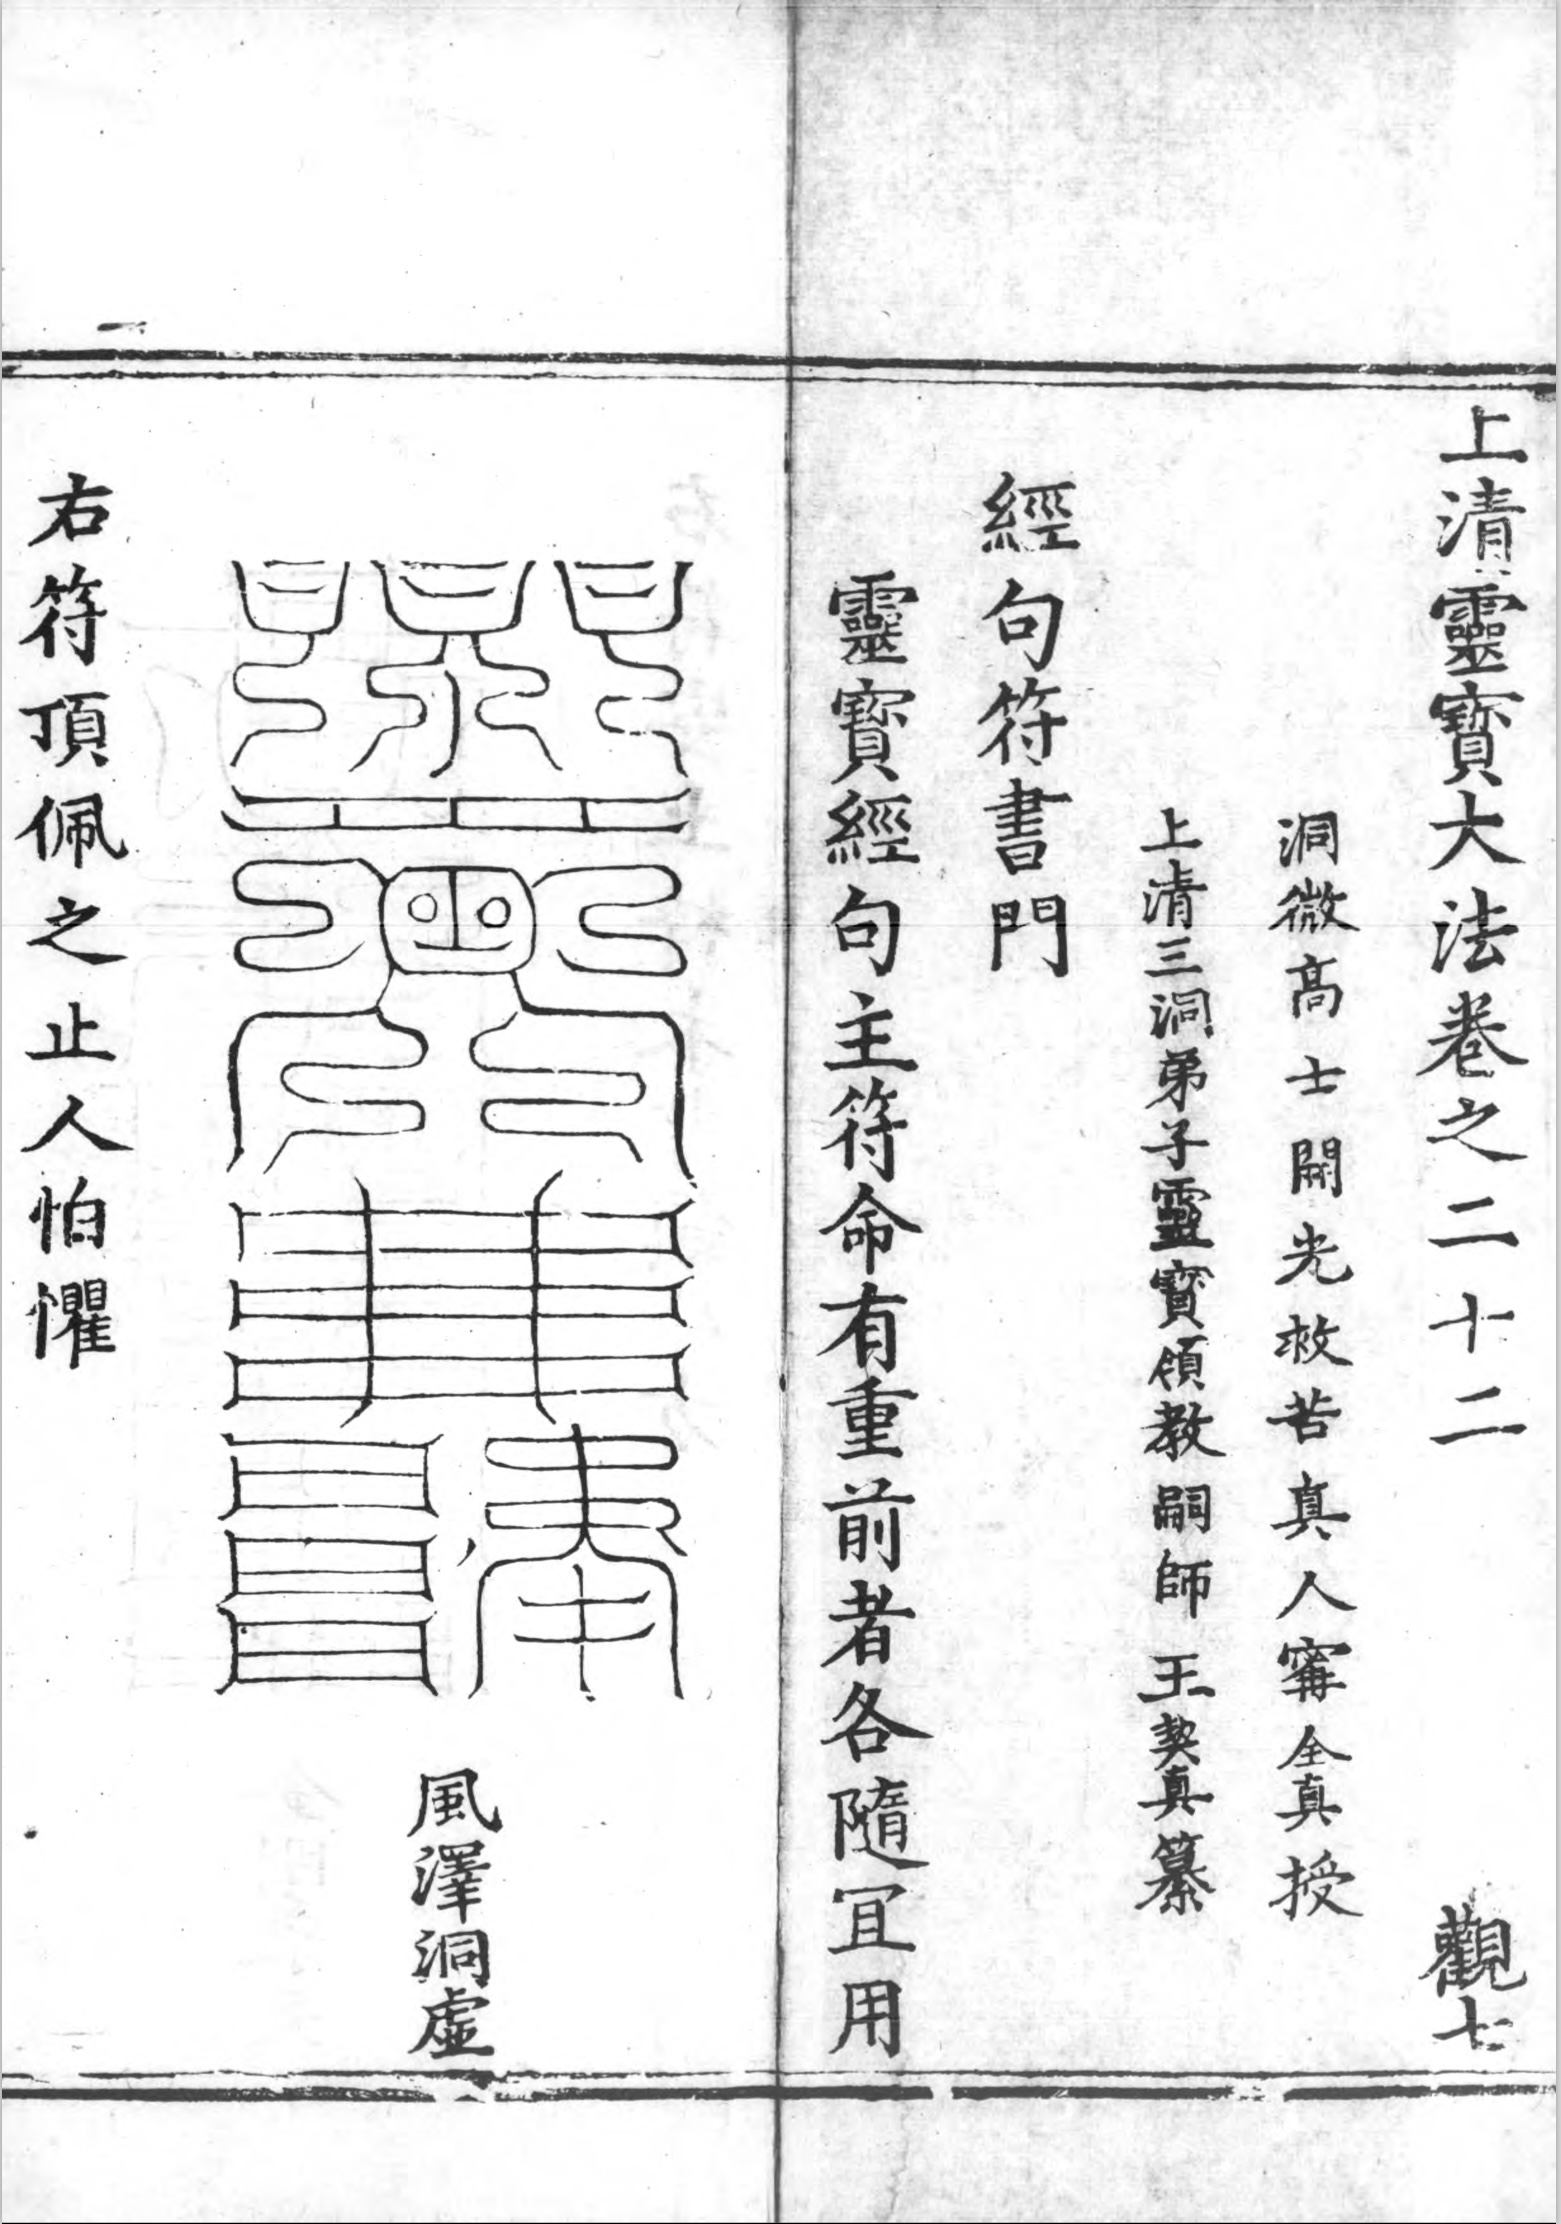 上清靈寳大法卷之二十二 觀七
洞微髙士開光救苦真人寗全真授
上清三洞弟子靈寳領教嗣師王契真纂
經句符書門
靈寳經句主符命有重前者各隨冝用
風澤洞虛
右符頂佩之止人怕懼